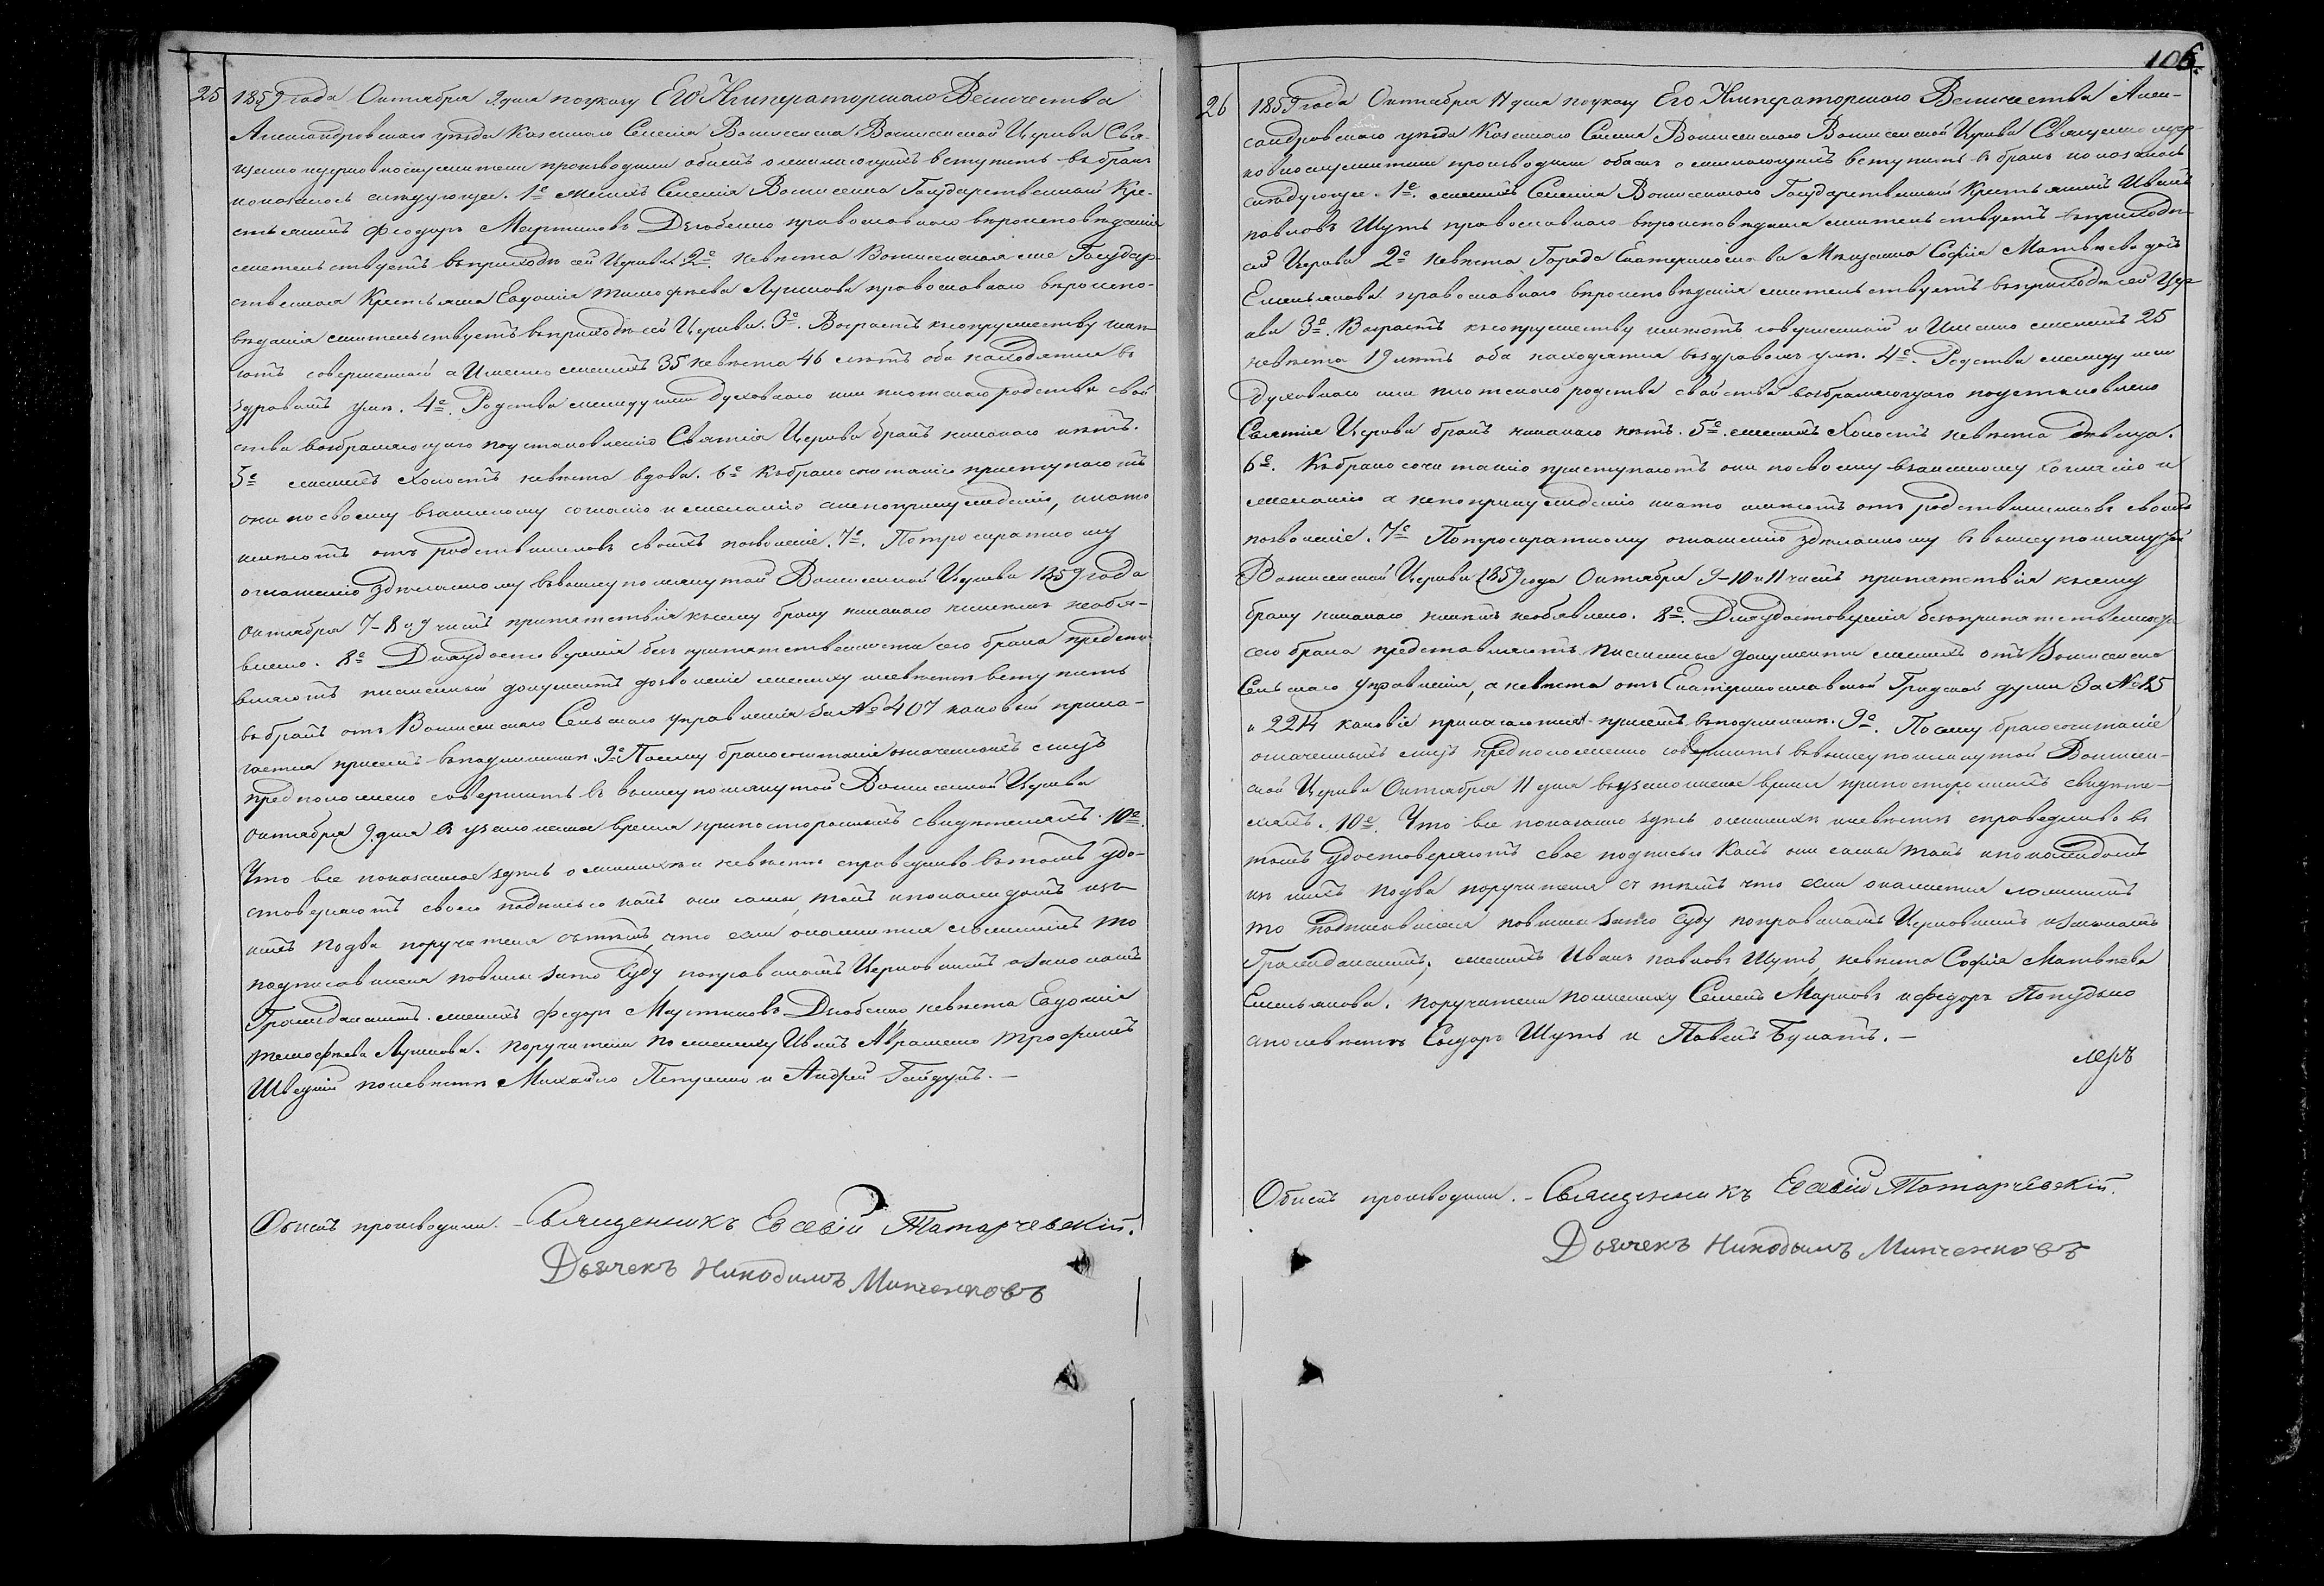 25
1859 года Октября 9. дня поуказу ЕГО Императорскаго Величества
Александровскаго уезда Казеннаго Селенія Вознесенска Вознесенской Церкви Свя-
щенно церковнослужители производили обыскъ о желающихъ вступить въ бракъ
и оказалось следующее. 1е женихъ Селенія Вознесенка Государственный Кре-
стьянинъ Феодоръ Мартиновъ Дзюбенко православнаго вероисповеданія
жительствуетъ въ приходе сей Церкви. 2е. Невеста Вознесенская же Государ-
ственная Крестьянка Евдокія Тимофеева Лункова православнаго вероиспо-
веданія жительствуетъ въ приходе сей Церкви. 3е. Возрастъ къ сопружеству име-
ютъ совершенный а Именно женихъ 35 невеста 46 летъ оба находятся въ
здравомъ уме. 4е. Родства между ими духовнаго или плотскаго родства свой
ства возбраняющаго поустановленію Святыя Церкви бракъ никакого нетъ.
5е женихъ Холостъ невеста вдова. 6е Къ бракосочитанію приступаютъ
они по своему взаимному согласію и желанію анепопринужденію, и на то
имеютъ отъ родственниковъ своихъ позволеніе. 7е. Потроекратному
оглашенію зделанному въ вышеупомянутой Вознесенской Церкви 1859 года
Октября 7-8 и 9 числъ препятствія къ сему браку никакого никемъ необъя-
влено. 8е Для удостоверенія безпрепятственности сего брака предста
вляютъ письменный документъ дозволеніе жениху и невесте вступить
въ бракъ отъ Вознесенскаго Сельскаго Управленія за № 407 каковый прила-
гается присемъ въ подлиннике. 9е Посему бракосочитаніе означенныхъ лицъ
предположено совершить въ вышеупомянутой Вознесенской Церкви
Октября 9. дня въ узаконенное время при постороннихъ свидетеляхъ. 10е.
Что все показанное здесь о женихе и невесте справедливо въ томъ удо-
стоверяютъ своею подписью какъ они сами, такъ и покаждомъ изъ
нихъ подва поручителя съ темъ, что если окажется ложнымъ то
подписавшіеся повинны зато Суду поправиламъ Церковнымъ и законамъ
Гражданскимъ. женихъ Федоръ Мартиновъ Дзюбенко невеста Евдокія
Тимофеева Лункова. поручители по жениху Иванъ Авраменко Трофимъ
Шведкій поневесте Михайло Петренко и Андрей Гайдукъ. -
Обыскъ производили. - Священникъ Евсевій Татарчевскій.
Дьячекъ Никодимъ Минченковъ
106.
26
1859 года Октября 11 дня поуказу Его Императорскаго Величества Алек-
сандровскаго уезда Казеннаго Селенія Вознесенскаго Вознесенской Церкви Священно цер-
ковнослужители производили обыскъ о желающихъ вступить въ бракъ и оказалось
следующее. 1е. женихъ Селенія Вознесенскаго Государственный Крестьянинъ Иванъ
павловъ Шуть православнаго вероисповеданія жительствуетъ въ приходе
сей Церкви 2е Невеста Города Екатеринославa Мещанка Софія Матвеева дочь
Емельянова православнаго вероисповеданія жительствуетъ въ приходе сей Цер
кви 3е. Возрастъ къ сопружеству имеютъ совершенный и Именно женихъ 25
невеста 19 летъ оба находятся въ здравомъ уме. 4е. Родства между ими
духовнаго или плотскаго родства свойства возбраняющаго поустановленію
Святыя Церкви бракъ никакого нетъ. 5е. женихъ Холостъ невеста девица.
6е. Къ бракосочитанію приступаютъ они по своему взаимному согласію и
желанію а непопринужденію и на то имеютъ отъ родственниковъ своихъ
позволеніе. 7е Потроекратному оглашенію зделанному въ вышеупомянутой
Вознесенской Церкви 1859 года Октября 9-10 и 11 числъ препятствія къ сему
браку никакого никемъ необъявлено. 8е. Для удостоверенія безпрепятственности
сего брака представляютъ письменные документы женихъ отъ Вознесенска
Сельскаго Управленія, а невеста отъ Екатеринославской Градской думы За №
и 2214 каковые прилагаются присемъ въ подлиннике. 9е. По сему бракосочитаніе
означенныхъ лицъ предположенно совершить въ вышеупомянутой Вознесен-
ской Церкви Октября 11 дня въ узаконенное время при постороннихъ свидете-
ляхъ. 10е. Что все показанно здесь о женихе и невесте справедливо въ
томъ удостоверяютъ свое подписью какъ они сами такъ и покаждомъ
из нихъ подва поручителя съ темъ что если окажется ложнымъ
то подписавшіеся повинны зато Суду поправиламъ Церковнымъ и законамъ
Гражданскимъ; женихъ Иванъ павловъ Шуть, невеста Софія Матвеева
Емельянова. поручители по жениху Семенъ Марковъ и федоръ Попудько
а по невесте Сидоръ Шуть и Павелъ Булатъ. -
Обыскъ производили. - Священникъ Евсевій Татарчевскій.
Дьячекъ Никодимъ Минченковъ